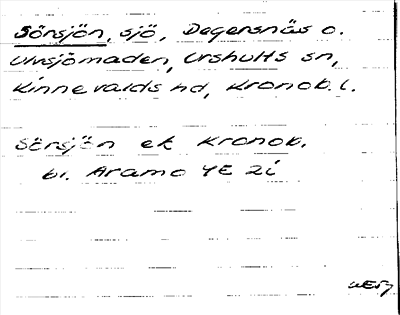 Sörsjön, sjö, Degersnäs o.
Umsjömaden, Urshults sn,
Kinnevalds hd, Kronob. l.
Sörsjön ek Kronob.
bl. Aramo 4E 2i